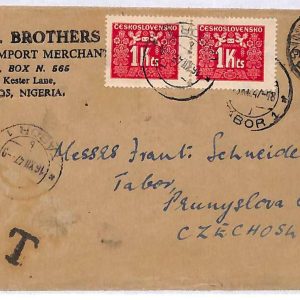 . BROTHERS
IMPORT MERCHANT
. BOX N. 565
Kester Lane,
OS, NIGERIA.
ČESKOSLOVENSKO ČESKOSLOVENSKO
1Kčs 1Kčs
TÁBOR 1
TÁBOR 1
16.XII.47
T
Messrs Frant. Schneider
Tabor,
Prumyslova
CZECHOSL